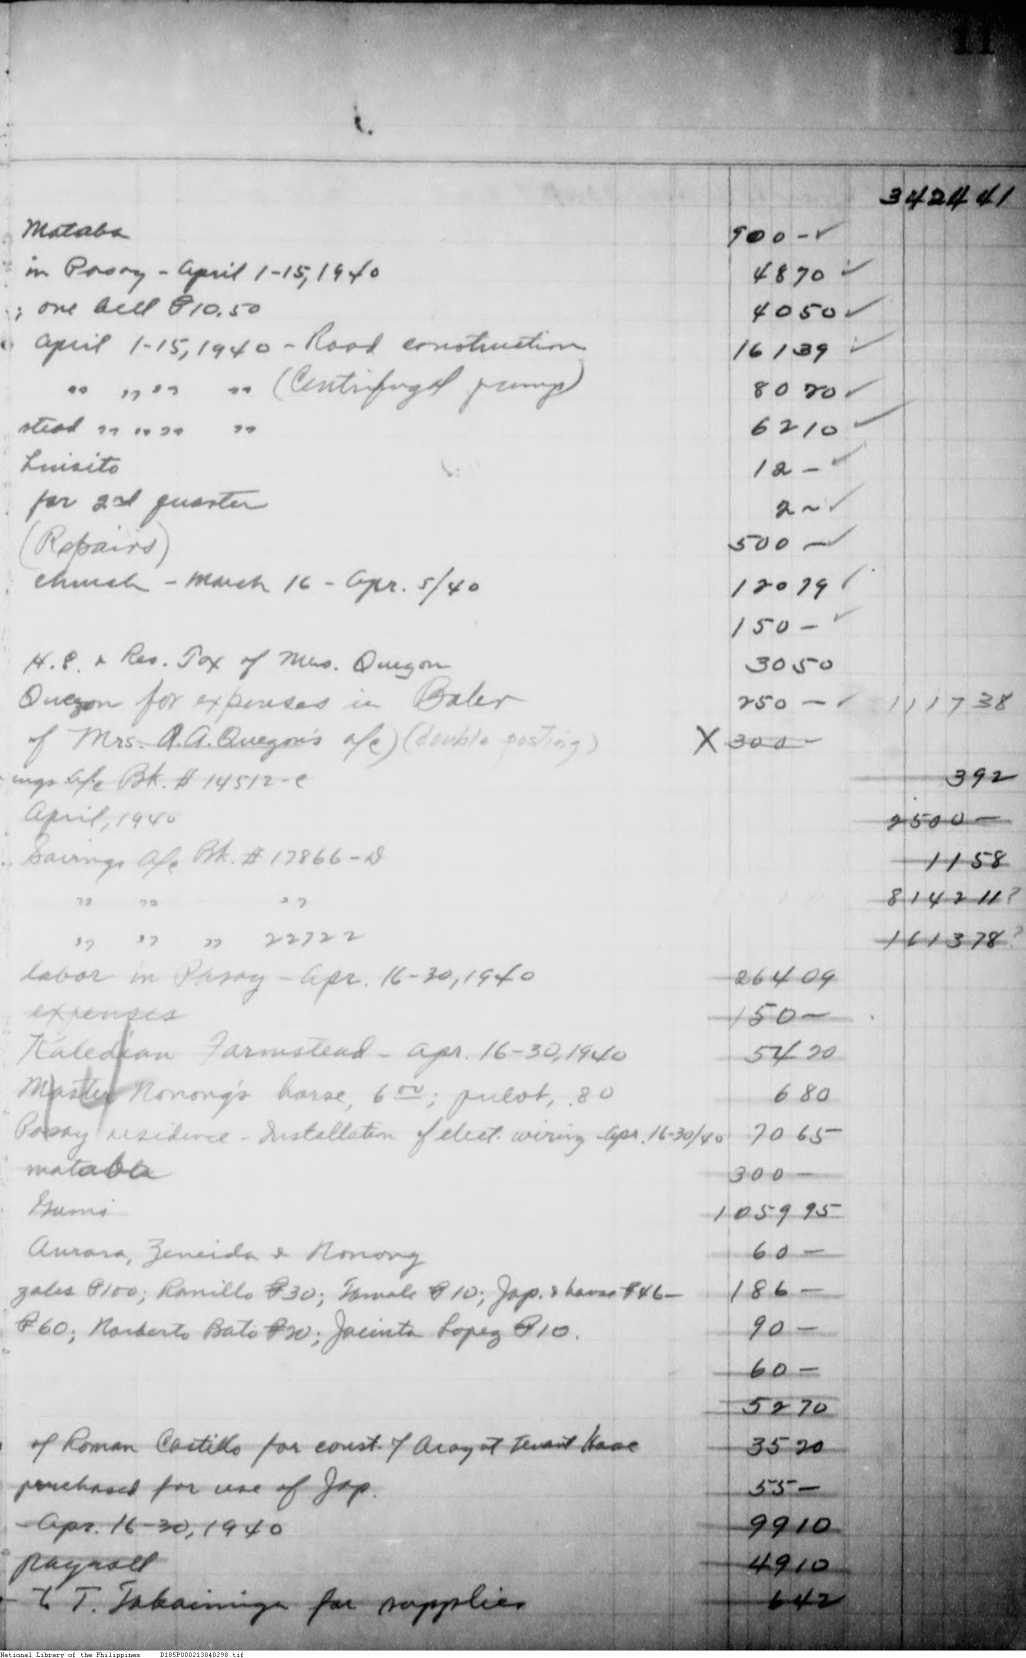 11
342441
Mataba 900 - ✓
in Pasay - April 1-15, 1940 4870 ✓
; one bell ₱10.50 4050 ✓
April 1-15, 1940 - Road construction 16139 ✓
" " " " (Centrifugal pump) 8020 ✓
stead " " " " 6210 ✓
Luisito 12 - ✓
for 2nd quarter 2 - ✓
(Repairs) 500 - ✓
church - March 16 - Apr. 5/40 12079 ✓
150 - ✓
H.P. & Res. Tax of Mrs. Quezon 3050
Quezon for expenses in Baler 250 - ✓ 111738
of Mrs. A.A. Quezon's a/c) (double posting) X 300 -
ings a/c Bk. # 14512-C 392
April, 1940 2500 -
Savings a/c Bk. # 17866-D 1158
" " " 814211?
" " " 22722 161378?
labor in Pasay - Apr. 16-30, 1940 26409
expenses 150 -
Kaledian Farmstead - Apr. 16-30, 1940 5420
Master Nonong's horse, 6.00; pulot, .80 680
Pasay residence - Installation of elect. wiring Apr. 16-30/40 7065
mataba 300 -
1059 95
Aurora, Zeneida & Nonong 60 -
zales ₱100; Ranillo ₱30; ₱10; Jap. & house ₱46 - 186 -
₱60; Norberto Bato ₱20; Jacinta Lopez ₱10. 90 -
60 -
5270
of Roman Castillo for const. of Arayat Tenant House 3520
purchased for use of Jap. 55 -
- Apr. 16-30, 1940 9910
payroll 4910
- to T. for supplies 642
National Library of the Philippines D185P000213040298.tif